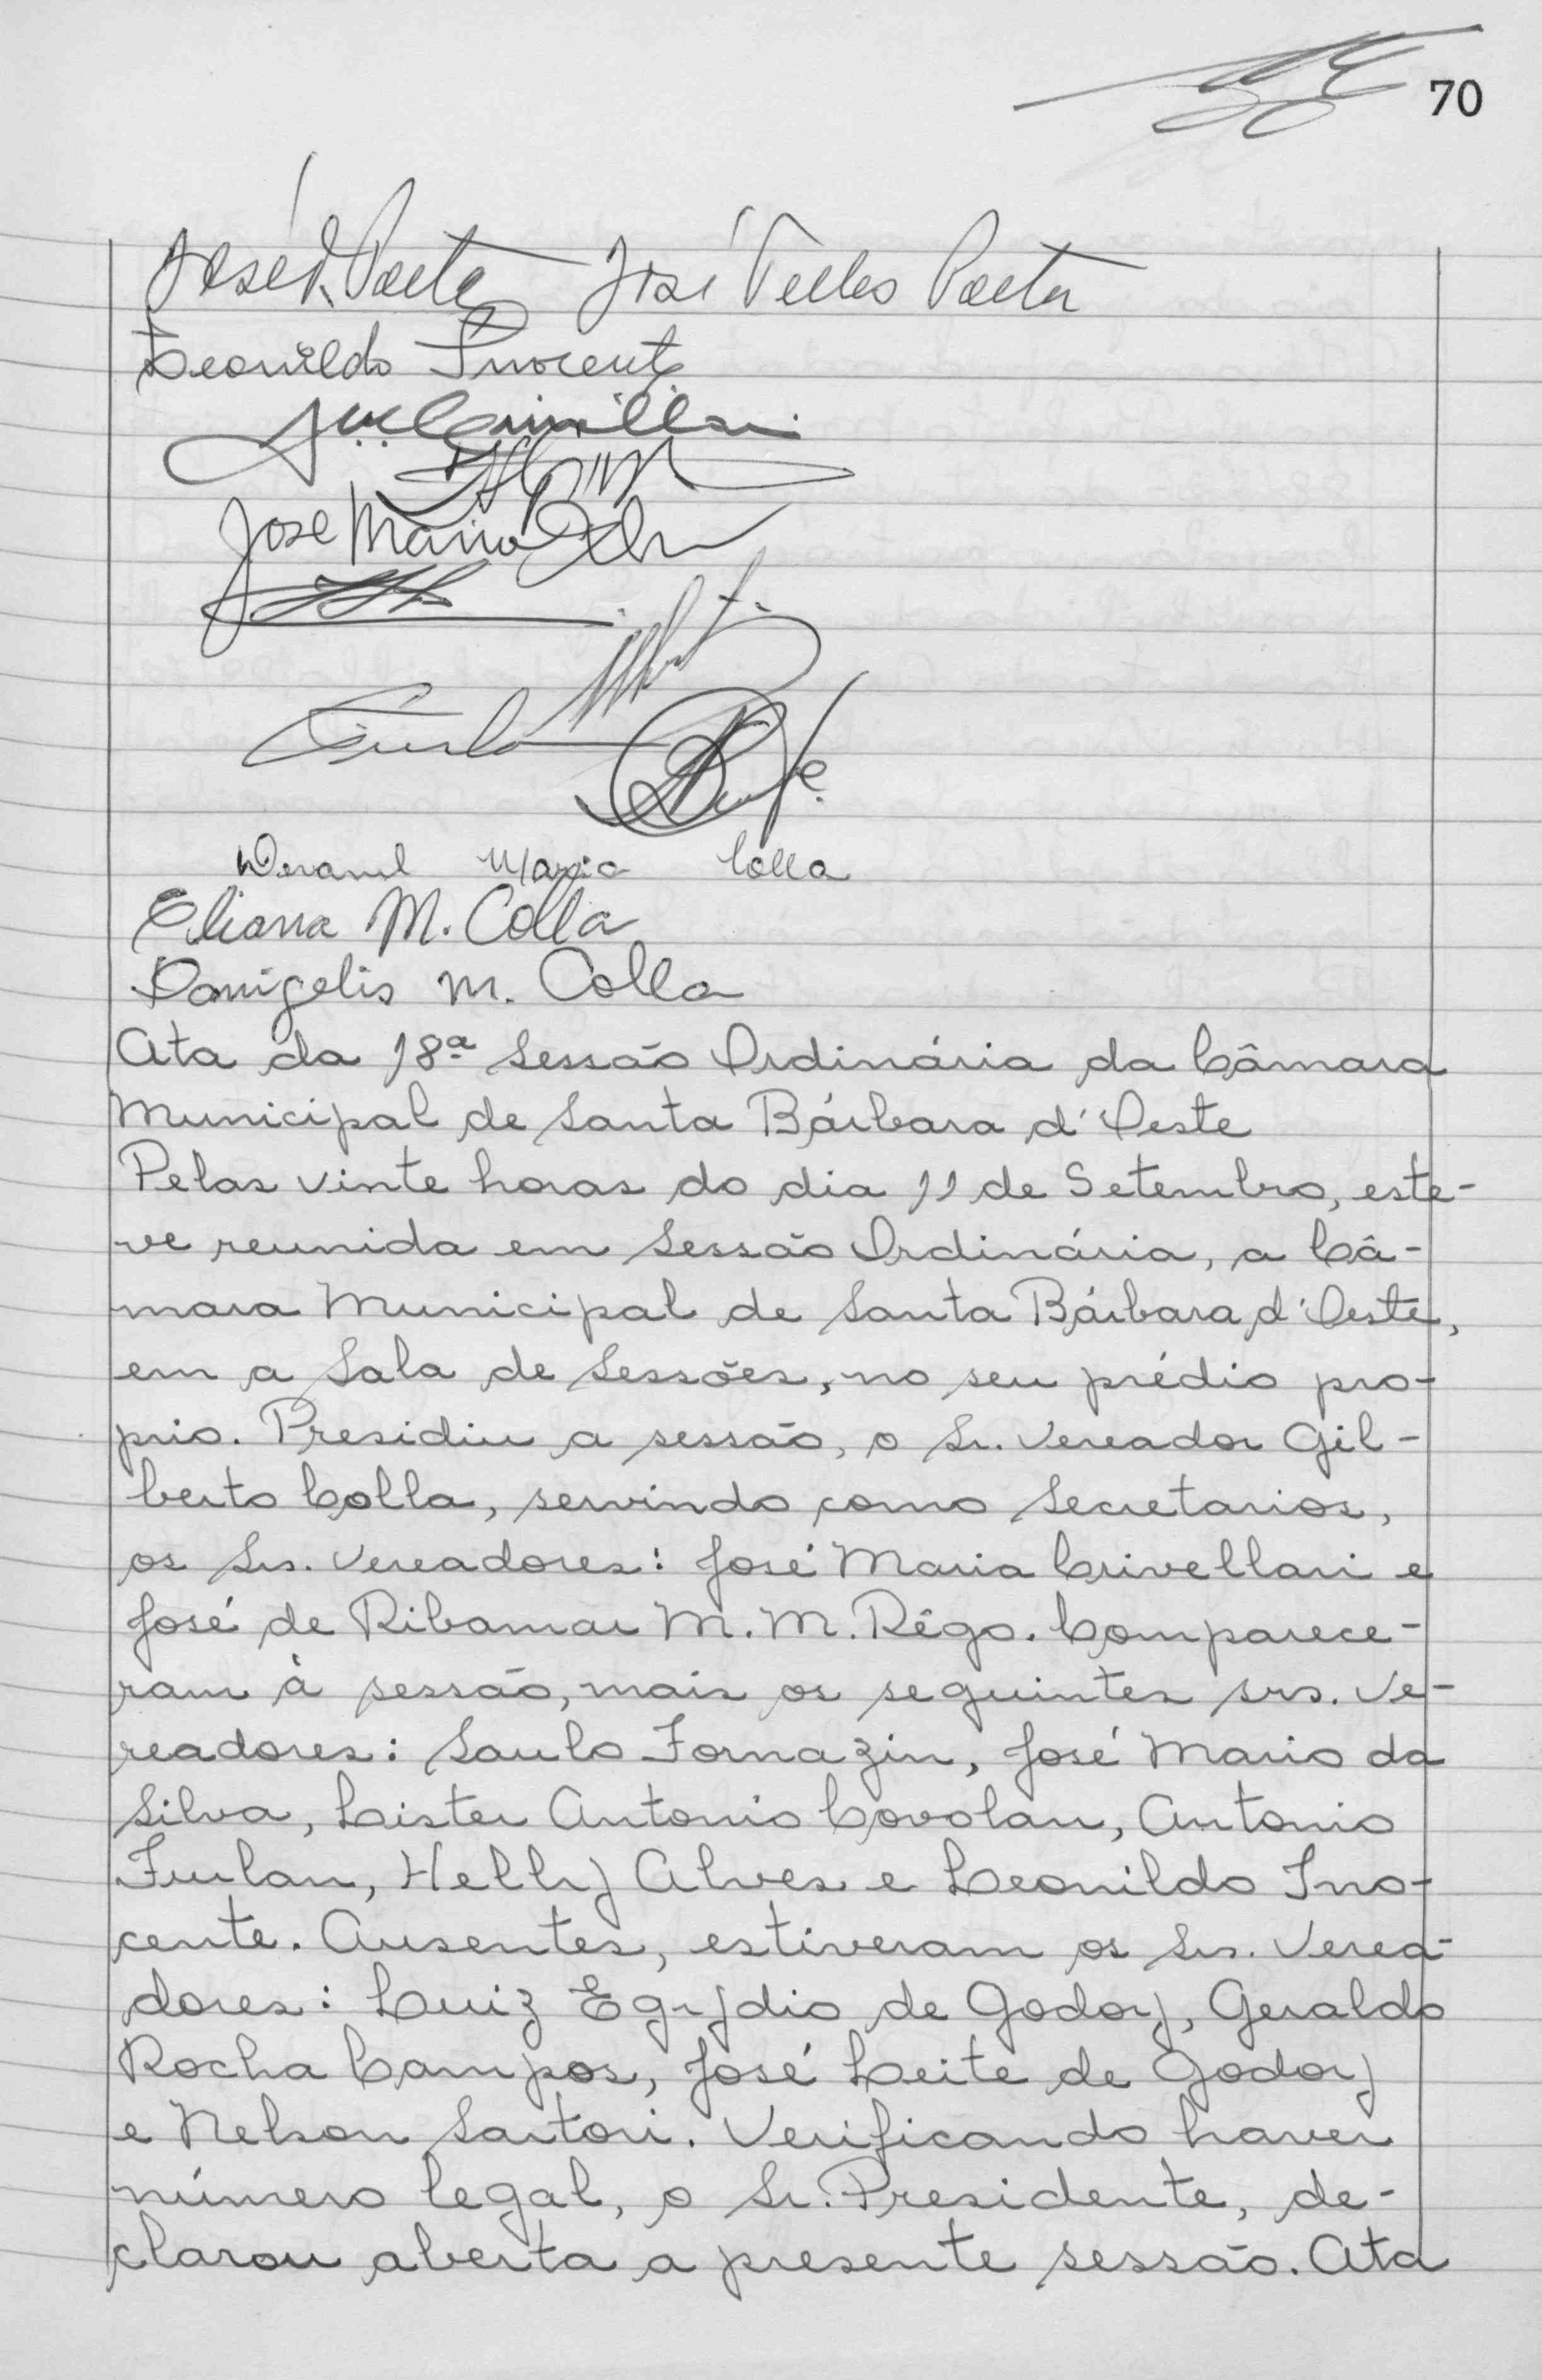 70
José Paeta José Telles Paeta
Leonildo Inocente
José Maria
Eliana M. Colla
M. Colla
Ata da 18ª Sessão Ordinária da Câmara
Municipal de Santa Bárbara d'Oeste
Pelas vinte horas do dia 11 de Setembro, este-
ve reunida em Sessão Ordinária, a Câ-
mara Municipal de Santa Bárbara d'Oeste,
em a Sala de Sessões, no seu prédio pro-
prio. Presidiu a sessão, o Sr. Vereador Gil-
berto Colla, servindo como Secretarios,
os Srs. Vereadores: José Maria Crivellari e
José de Ribamar M. M. Rêgo. Comparece-
ram à sessão, mais os seguintes srs. Ve-
readores: Saulo Fornazin, José Mario da
Silva, Lister Antonio Covolan, Antonio
Furlan, Helly Alves e Leonildo Ino-
cente. Ausentes, estiveram os Srs. Verea-
dores: Luiz Egydio de Godoy, Geraldo
Rocha Campos, José Leite de Godoy
e Nelson Sartori. Verificando haver
número legal, o Sr. Presidente, de-
clarou aberta a presente sessão. Ata